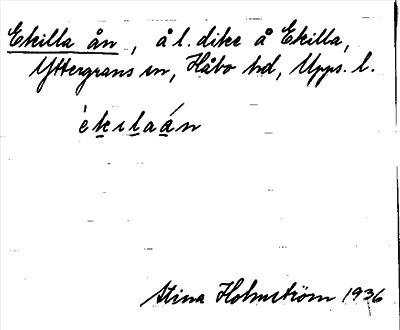 Ekilla ån, å l. dike å Ekilla,
Yttergrans sn, Håbo hd, Upps. l.
èkılaán
Stina Holmström 1936